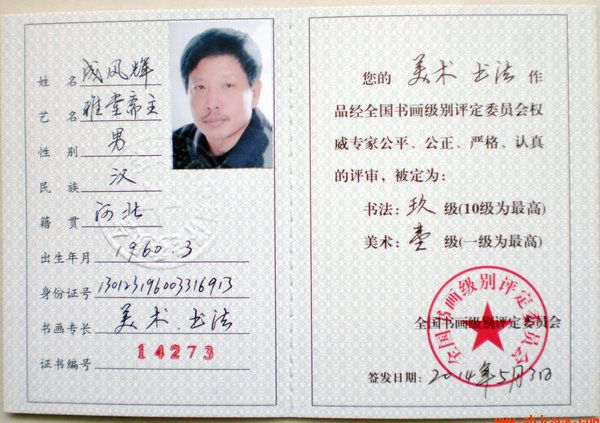 姓名 成风辉
艺名 雅堂斋主
性别 男
民族 汉
籍贯 河北
出生年月 1960.3
身份证号 130123196003316913
书画专长 美术、书法
证书编号 14273
您的 美术 书法 作
品经全国书画级别评定委员会权
威专家公平、公正、严格、认真
的评审，被定为：
书法：玖 级(10级为最高)
美术：壹 级(一级为最高)
全国书画级别评定委员会
全国书画级别评定委员会
签发日期：2014年5月3日